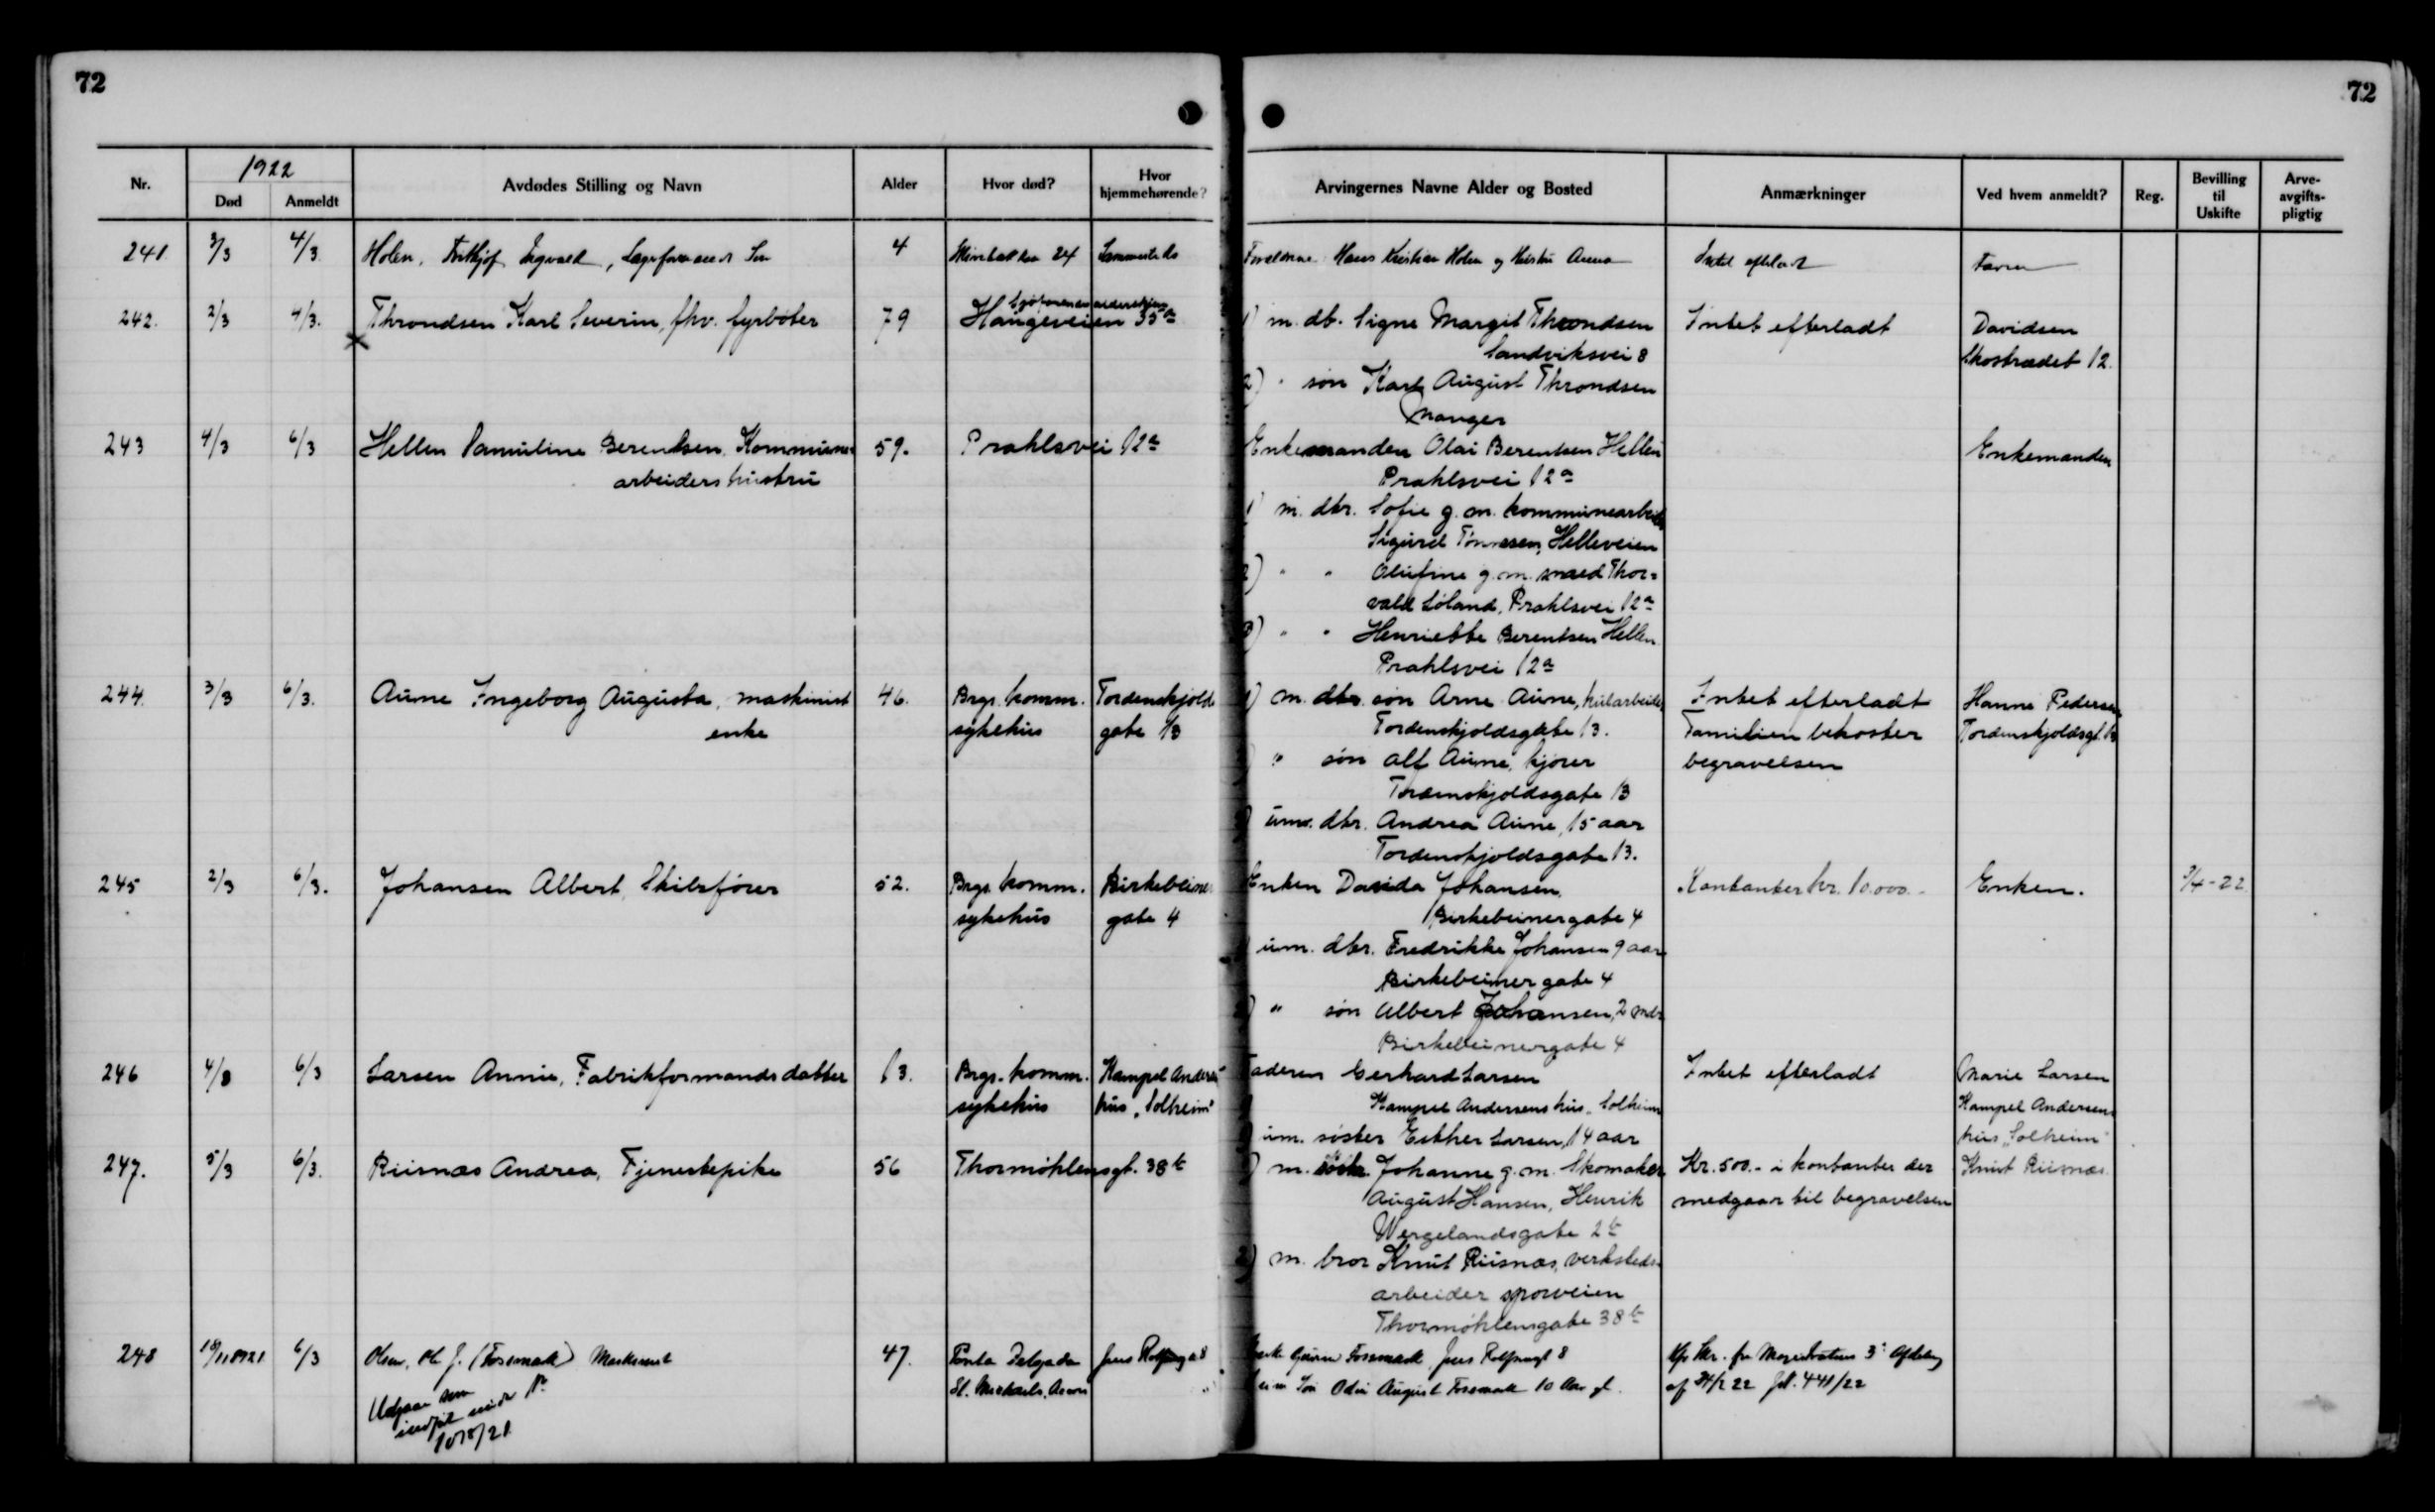 72
72
1922
Nr. Død Anmeldt Avdødes Stilling og Navn Alder Hvor død? Hvor hjemmehørende? Arvingernes Navne Alder og Bosted Anmærkninger Ved hvem anmeldt? Reg. Bevilling til Uskifte Arve-avgifts-pligtig
241 3/3 4/3. Holen, Ingvald, Søn 4 24 Sammesteds Forældrene Hans Kristian Holen og Hustru Anna Intet efterladt Faren
242. 2/3 4/3. Throndsen Karl Severin, fhv. fyrbøter 79 Haugeveien 35a 1) m. db. Signe Margit Throndsen Intet efterladt Davidsen
Sandviksvei 8 Skostrædet 12.
2) " søn Karl August Throndsen
Manger
243 4/3 6/3 Hellen Pauline Berentsen, Kommune- 59. Prahlsvei 12a Enkemanden Olai Berentsen Hellen Enkemanden
arbeiders hustru Prahlsvei 12a
1) m. dtr. Sofie g. m. kommunearbeider
Sigurd Tønnesen, Helleveien
2) " " Olufine g. m. smed Thor-
vald Løland, Prahlsvei 12a
3) " " Henriette Berentsen Hellen
Prahlsvei 12a
244. 3/3 6/3. Aune Ingeborg Augusta, maskinist 46. Brgs. komm. Tordenskjolds 1) m. søn Arne Aune, Intet efterladt Hanna Pedersen
enke sykehus gate 13 Tordenskjoldsgate 13. Familien bekoster Tordenskjoldsgt. 13
" søn Alf Aune, kjører begravelsen
Tordenskjoldsgate 13
um. dtr. Andrea Aune, 15 aar
Tordenskjoldsgate 13.
245 2/3 6/3. Johansen Albert, Skibsfører 52. Brgs. komm. Birkebeiner Enken Davida Johansen. Kontanter kr. 10.000.- Enken. 3/4-22
sykehus gate 4 Birkebeinergate 4
um. dtr. Fredrikke Johansen 9 aar
Birkebeinergate 4
" søn Albert Johansen, 2 mdr
Birkebeinergate 4
246 4/3 6/3 Larsen Annie, Fabrikformands datter 13. Brgs. komm. Kampel Andersens Faderen Gerhard Larsen Intet efterladt Marie Larsen
sykehus hus "Solheim" Kampel Andersens hus "Solheim Kampel Andersens
um. søster Esther Larsen, 14 aar hus "Solheim"
247. 5/3 6/3. Riisnæs Andrea, Tjenestepike 56 Thormøhlensgt. 38b m. Johanne g. m. Skomaker Kr. 500.- i kontanter der Knut Riisnæs
August Hansen, Henrik medgaar til begravelsen
Wergelandsgate 2b
2) m. bror Knut Riisnæs, verksteds-
arbeider sporveien
Thormøhlensgate 38b
248 18/11 1921 6/3 Olsen, Ole J. (Fosmark) Maskinist 47. Ponta Delgada Jens Rolfsengt 8 Enke Fosmark, Jens Rolfsengt 8 Skr. fra Magistratens 3' Afdeling
Udgaar som St. Michaels, Acores um Søn Odin August Fosmark 10 Aar gl. af 24/2 22 Jnl. 441/22
indført under No
1078/21